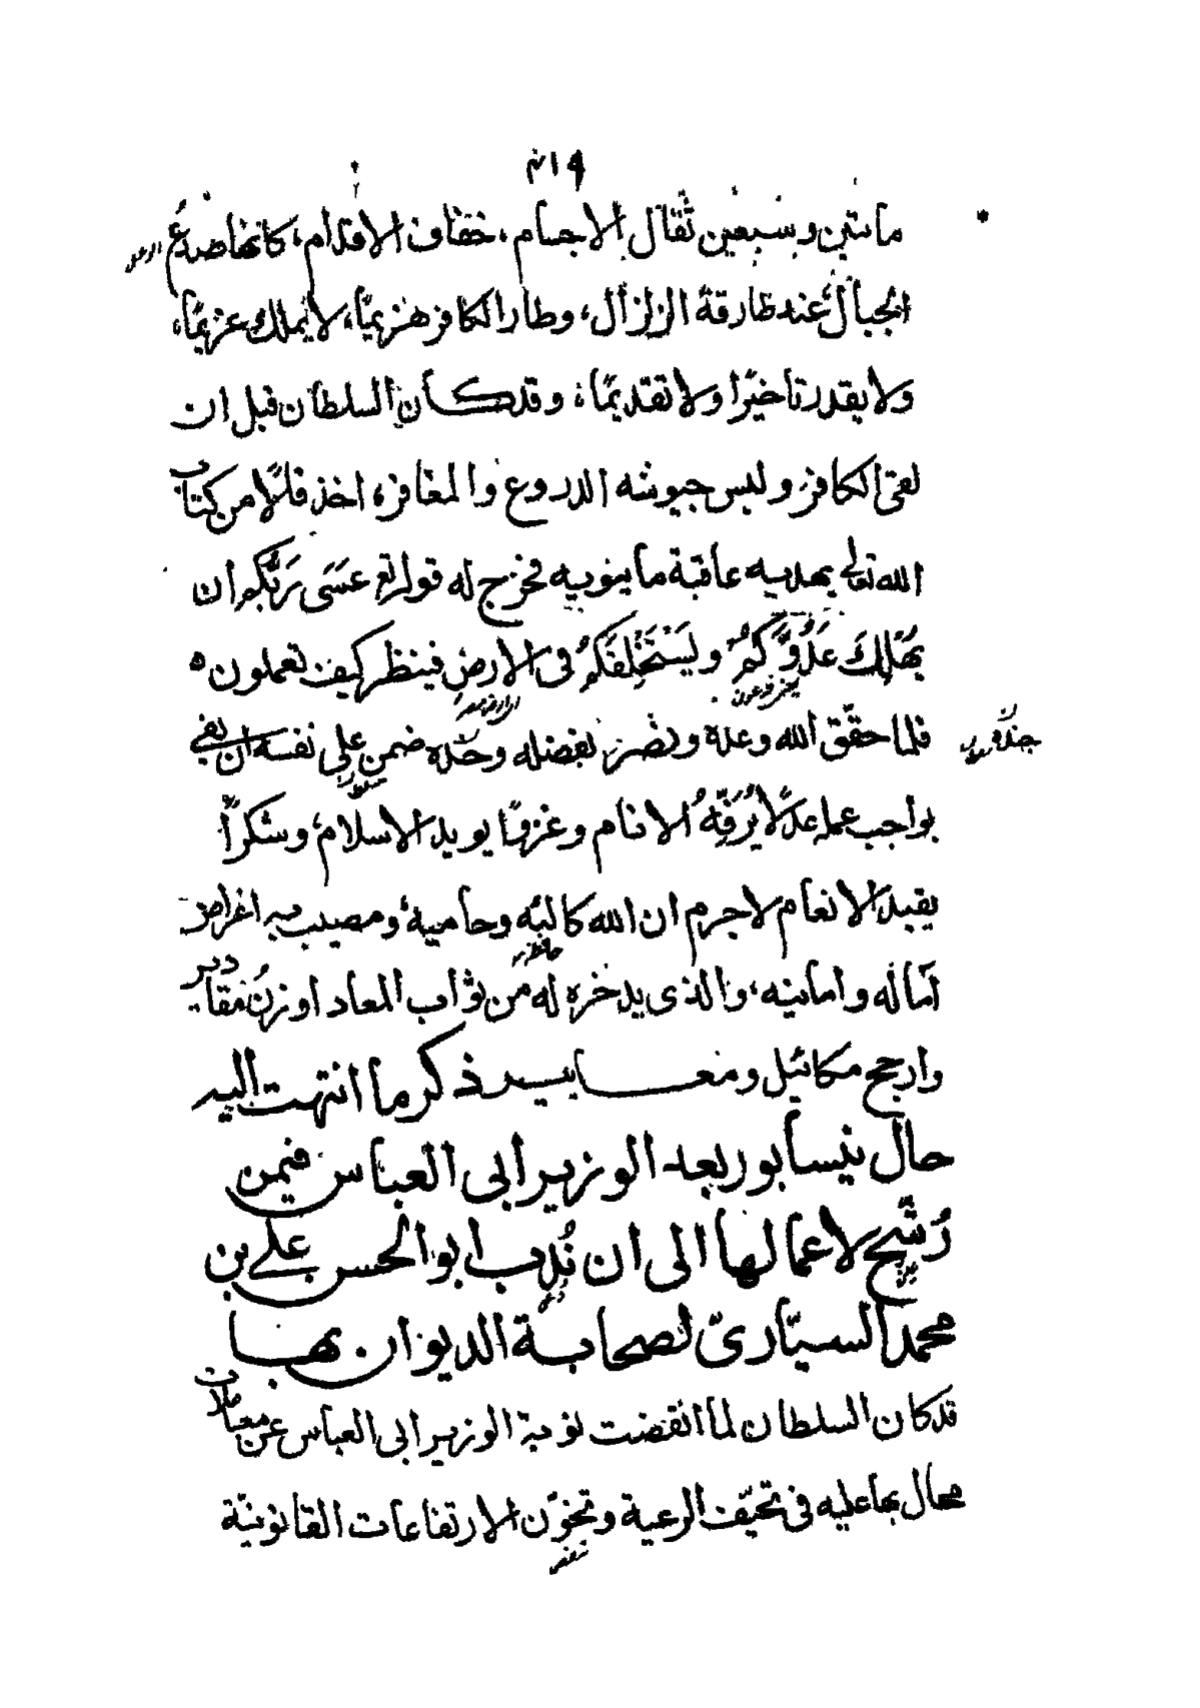 مائتين وسبعين ثقال الاجسام، خفاف الاقدام، كانها صدع
الجبال عند طارقة الزلزال، وطار الكافر هزيمًا، لا يملك عزيمًا،
ولا يقدر تاخيرًا ولا تقديمًا، وقد كان السلطان قبل ان
لقى الكافر ولبس جيوشه الدروع والمغافر، اخذ فالًا من كتاب
الله تعالى يهديه عاقبة ما ينويه فخرج له قوله تع عَسَى رَبُّكم أن
يُهْلِكَ عَدُوَّكُمْ ويَسْتَخْلِفَكُمْ فى الارض فينظر كيف تعملون ه
يعنى فرعون
فلما حقّق الله وعده ونصره بفضله وحده ضمن على نفسه ان يفى
بواجب عمله عدلًا يُرَفِّهُ الانام وغزوًا يويد الاسلام، وشكرًا
يقيد الانعام لا جرم ان الله كالئه وحاميه، ومصيب به اغراض
حافظه
آماله وامانيه، والذى يدخره له من ثواب المعاد اوزن مقادير
وارجح مكائيل ومعايير ذكر ما انتهت اليه
حال نيسابور بعد الوزير ابى العباس فيمن
رُشّح لاعمالها الى ان نُدب ابو الحسن على بن
محمد السيّارىّ لصحابة الديوان بها
قد كان السلطان لما انقضت نوبة الوزير ابى العباس عن معاملات
محال بها عليه فى تحيّف الرعية وتخوّن الارتفاعات القانونيّة